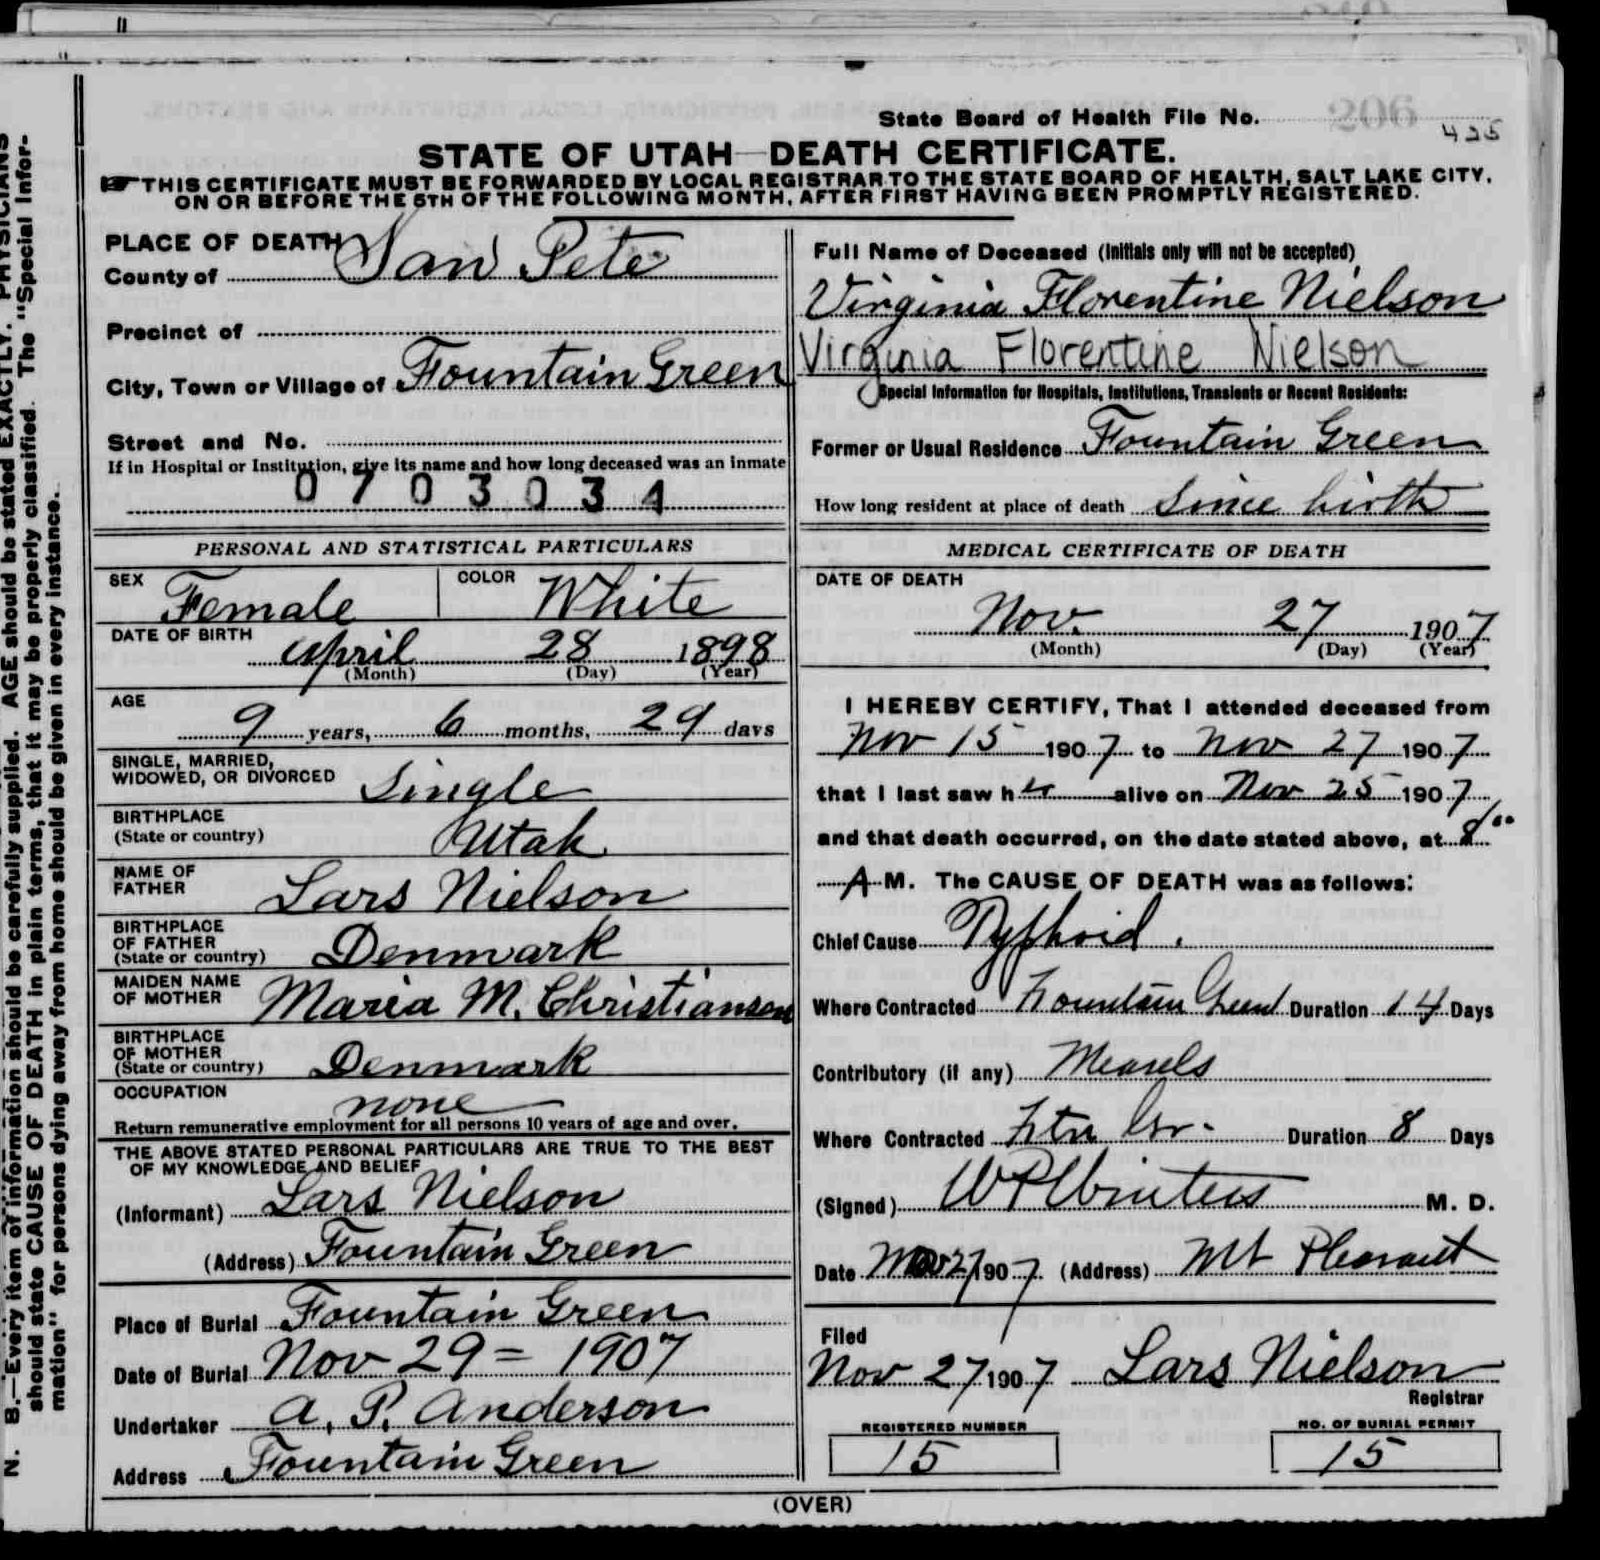 State Board of Health File No. 425
STATE OF UTAH—DEATH CERTIFICATE.
THIS CERTIFICATE MUST BE FORWARDED BY LOCAL REGISTRAR TO THE STATE BOARD OF HEALTH, SALT LAKE CITY,
ON OR BEFORE THE 5TH OF THE FOLLOWING MONTH, AFTER FIRST HAVING BEEN PROMPTLY REGISTERED.
PLACE OF DEATH
County of San Pete
Precinct of
City, Town or Village of Fountain Green
Street and No.
If in Hospital or Institution, give its name and how long deceased was an inmate
0703034
PERSONAL AND STATISTICAL PARTICULARS
SEX Female COLOR White
DATE OF BIRTH April 28 1898
(Month) (Day) (Year)
AGE
9 years, 6 months, 29 days
SINGLE, MARRIED,
WIDOWED, OR DIVORCED Single
BIRTHPLACE
(State or country) Utah
NAME OF
FATHER Lars Nielson
BIRTHPLACE
OF FATHER
(State or country) Denmark
MAIDEN NAME
OF MOTHER Maria M. Christiansen
BIRTHPLACE
OF MOTHER
(State or country) Denmark
OCCUPATION
none
Return remunerative employment for all persons 10 years of age and over.
THE ABOVE STATED PERSONAL PARTICULARS ARE TRUE TO THE BEST
OF MY KNOWLEDGE AND BELIEF
(Informant) Lars Nielson
(Address) Fountain Green
Place of Burial Fountain Green
Date of Burial Nov 29 = 1907
Undertaker A. P. Anderson
Address Fountain Green
Full Name of Deceased (Initials only will not be accepted)
Virginia Florentine Nielson
Virginia Florentine Nielson
Special Information for Hospitals, Institutions, Transients or Recent Residents:
Former or Usual Residence Fountain Green
How long resident at place of death Since birth
MEDICAL CERTIFICATE OF DEATH
DATE OF DEATH
Nov. 27 1907
(Month) (Day) (Year)
I HEREBY CERTIFY, That I attended deceased from
Nov 15 1907 to Nov 27 1907
that I last saw her alive on Nov 25 1907
and that death occurred, on the date stated above, at 8/00
A M. The CAUSE OF DEATH was as follows:
Chief Cause Typhoid.
Where Contracted Fountain Green Duration 14 Days
Contributory (if any) Measels
Where Contracted Ftn Gr. Duration 8 Days
(Signed) W P Winters M. D.
Date Nov 27 1907 (Address) Mt Pleasant
Filed
Nov 27 1907 Lars Nielson
Registrar
REGISTERED NUMBER
15
NO. OF BURIAL PERMIT
15
(OVER)
N. B.—Every item of information should be carefully supplied. AGE should be stated EXACTLY. PHYSICIANS
should state CAUSE OF DEATH in plain terms, that it may be properly classified. The "Special Infor-
mation" for persons dying away from home should be given in every instance.